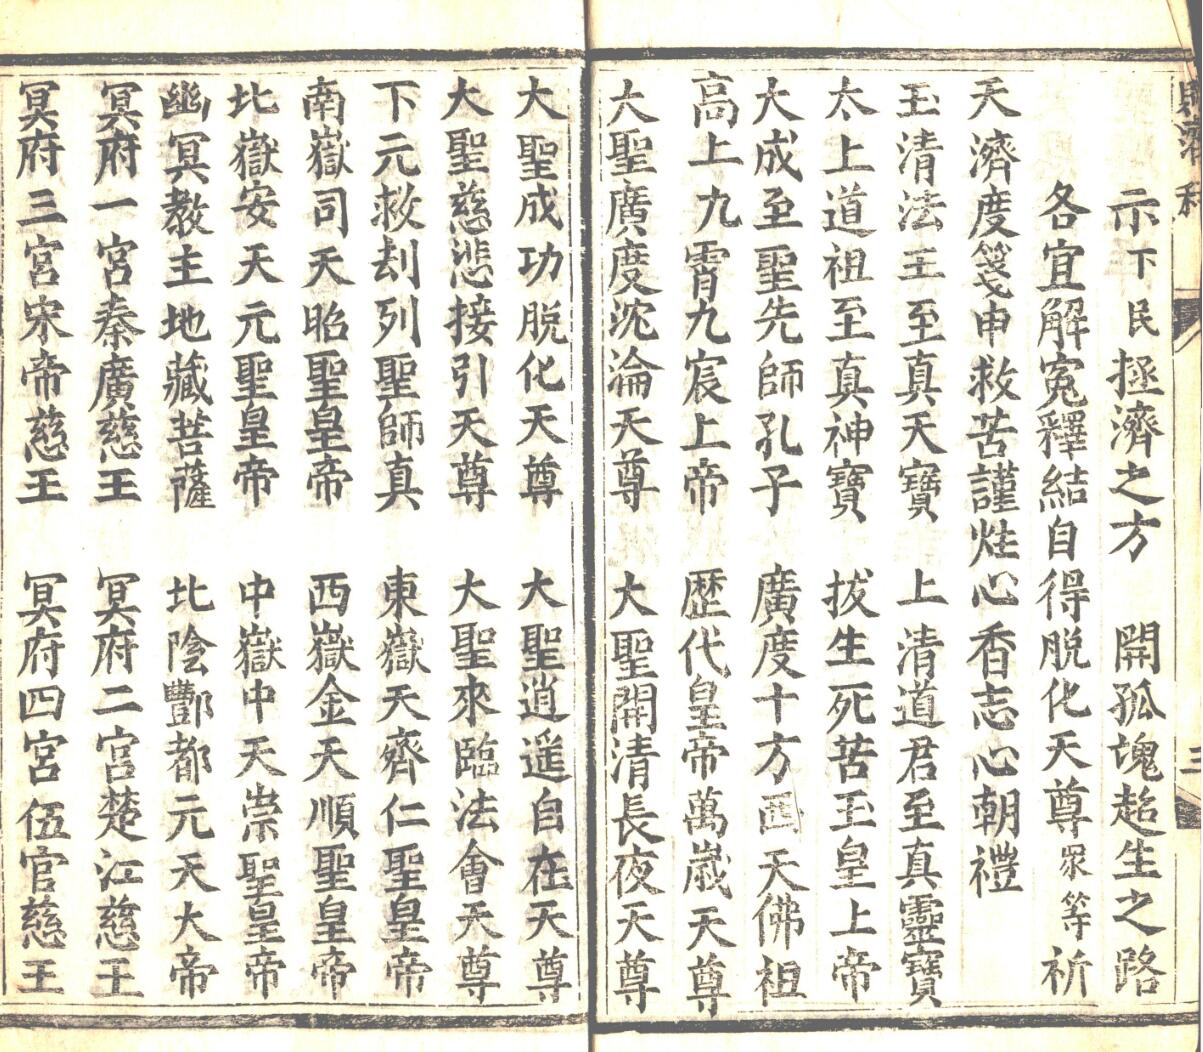 示下民拯濟之方　開孤塊超生之路
各宜解寃釋結自得脫化天尊眾等祈
天濟度箋申救苦謹炷心香志心朝禮
玉清法王至真天寶　上清道君至真靈寶
太上道祖至真神寶　拔生死苦玉皇上帝
大成至聖先師孔子　廣度十方西天佛祖
高上九霄九宸上帝　歷代皇帝萬歲天尊
大聖廣度沈淪天尊　大聖開清長夜天尊
大聖成功脫化天尊　大聖逍遥自在天尊
大聖慈悲接引天尊　大聖來臨法會天尊
下元救刦列聖師真　東嶽天齊仁聖皇帝
南嶽司天昭聖皇帝　西嶽金天順聖皇帝
北嶽安天元聖皇帝　中嶽中天崇聖皇帝
幽冥教主地藏菩薩　北陰酆都元天大帝
冥府一宮秦廣慈王　冥府二宮楚江慈王
冥府三宮宋帝慈王　冥府四宮伍官慈王